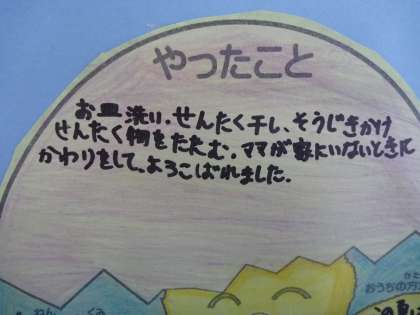 やったこと
お皿洗い、せんたく干し、そうじきかけ
せんたく物をたたむ。ママが家にいないときに
かわりをして、よろこばれました。
ねん くみ
おうちの方